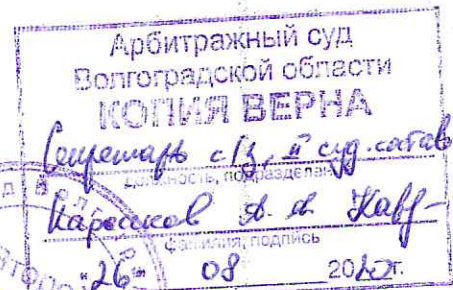 Арбитражный суд
Волгоградской области
КОПИЯ ВЕРНА
Секретарь с/з, II суд. состав
должность, подразделение
фамилия, подпись
"26" 08 20 г.